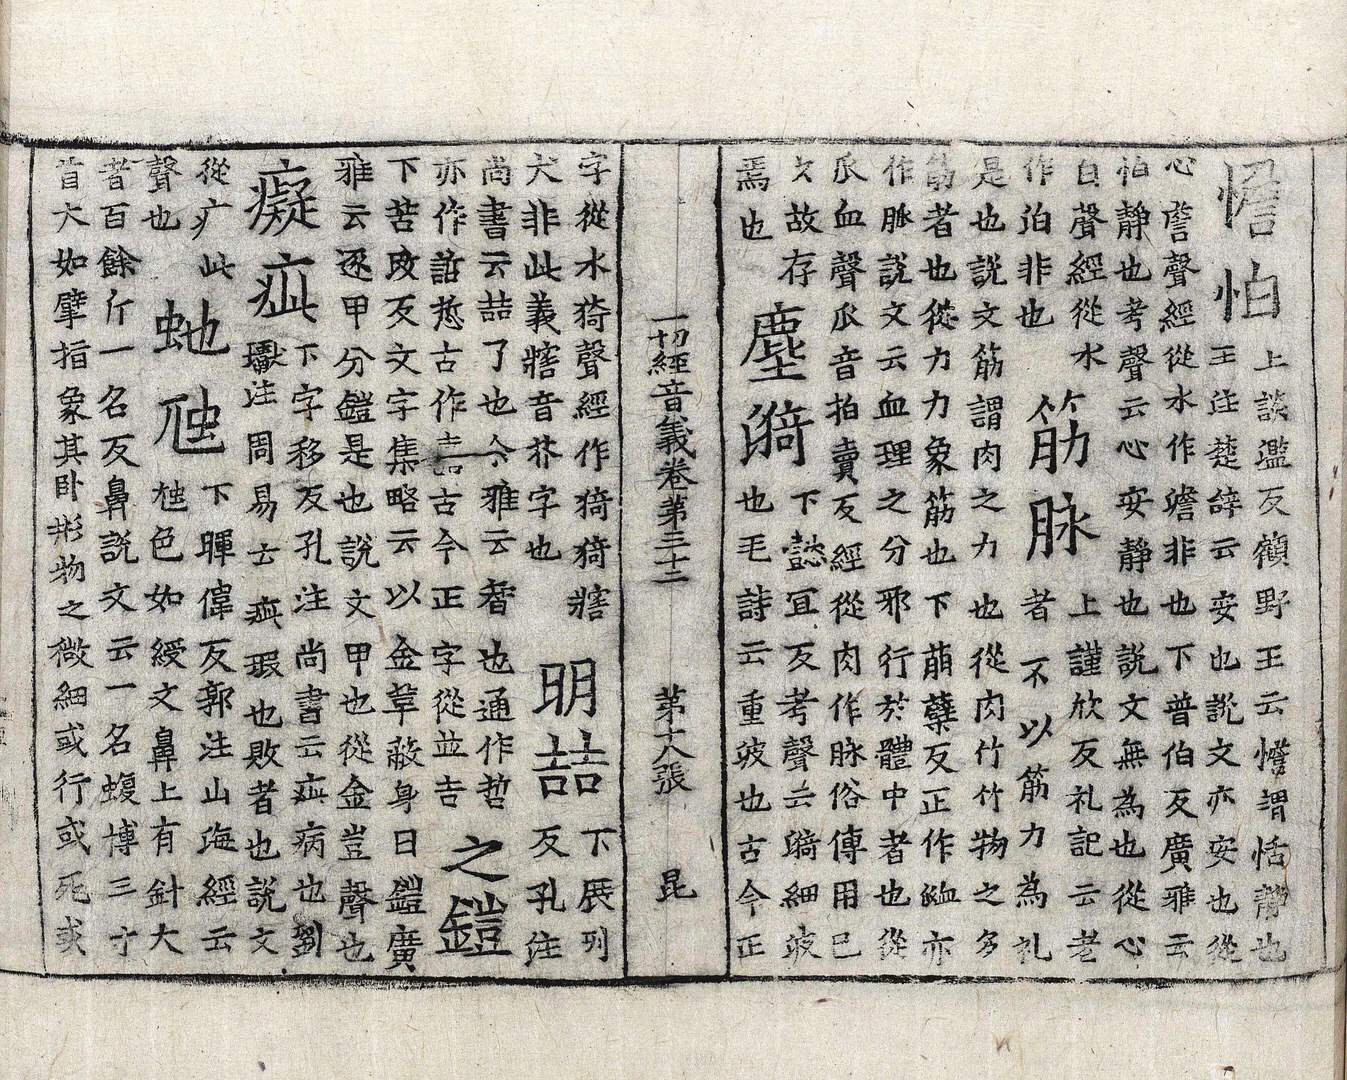 憺怕上談濫反顧野王云憺謂恬靜也
王注楚辭云安也說文亦安也從
心詹聲經從水作澹非也下普伯反廣雅云
怕靜也考聲云心安靜也說文無為也從心
白聲經從水
作泊非也
筋脉上謹欣反礼記云老
者不以筋力為礼
是也說文筋謂肉之力也從肉竹竹物之多
筋者也從力力象筋也下萠蘖反正作衇亦
作脈說文云血理之分邪行於體中者也從
𠂢血聲𠂢音拍賣反經從肉作脉俗傳用已
久故存
焉也
塵猗下懿冝反考聲云漪細波
也毛詩云重波也古今正
一切經音義卷第三十二 第十八張 昆
字從水猗聲經作猗猗𤟇
犬非此義𤟇音介字也
明喆下展列
反孔注
尚書云喆了也尒雅云智也通作哲
亦作誩悊古作嚞古今正字從並吉
之鎧
下苦改反文字集略云以金革蔽身曰鎧廣
雅云逐甲分鎧是也說文甲也從金豈聲也
癡疵下字移反孔注尚書云疵病也劉
瓛注周易云疵瑕也敗者也說文
從疒此
聲也
虵虺下暉偉反郭注山海經云
虺色如綬文鼻上有針大
者百餘斤一名反鼻說文云一名蝮博三寸
首大如擘指象其卧形物之微細或行或死或